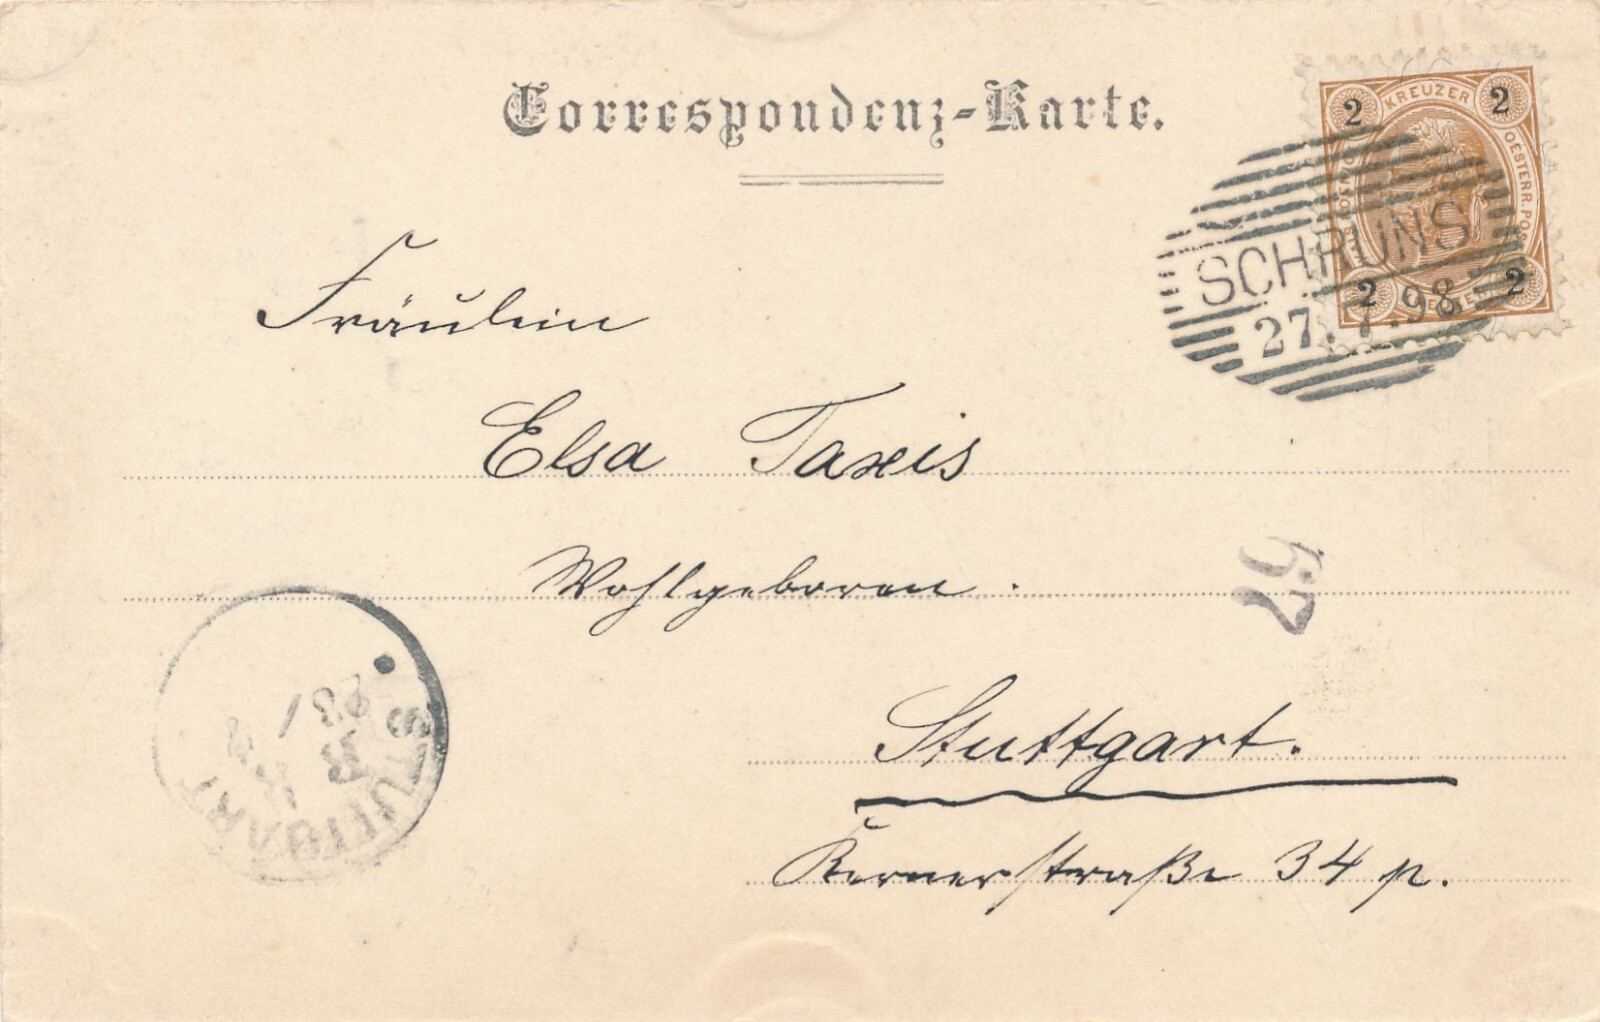 Correspondenz-Karte.
2 KREUZER 2
OESTERR. POST
2 2
SCHRUNS
27. 7. 98
Fräulein
Elsa Taxis
Wohlgeboren.
Stuttgart.
Kernerstraße 34 p.
STUTTGART